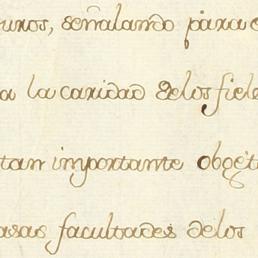 señalando para
a la caridad delos fiele
tan importante obgèt
facultades delos